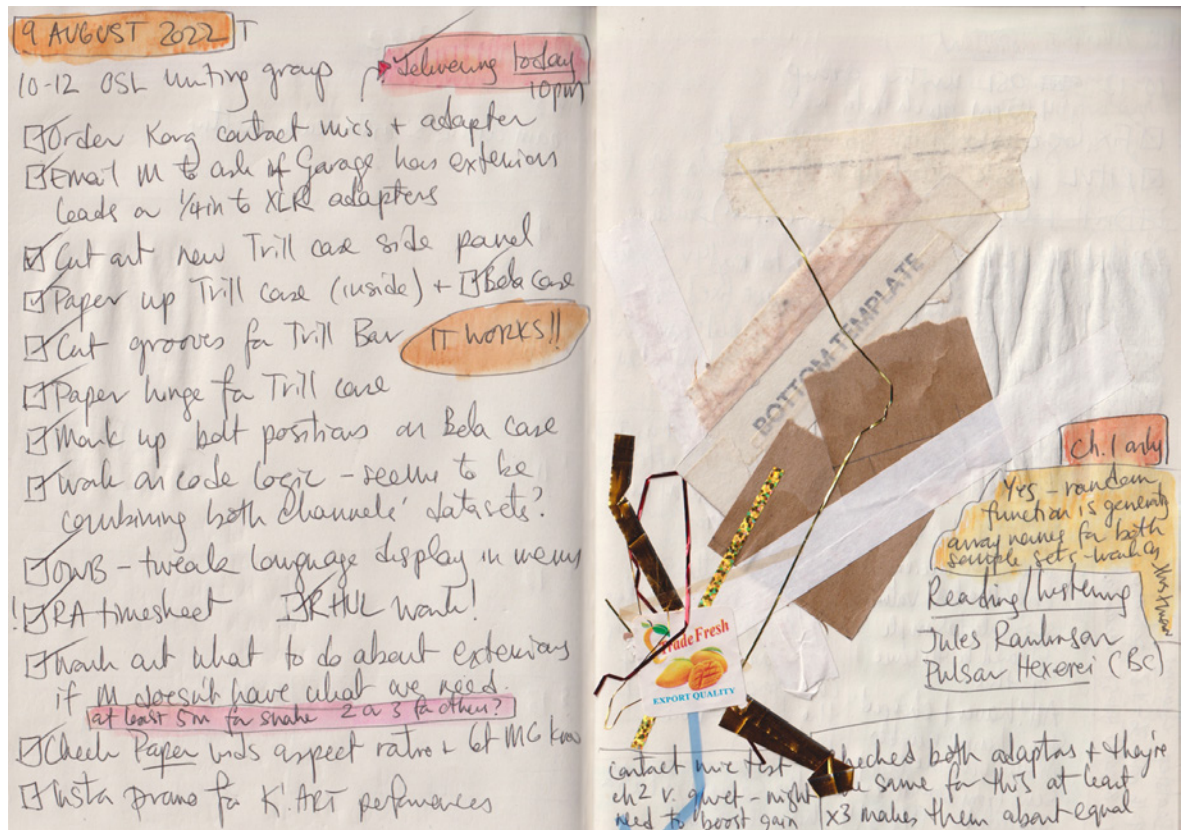 9 AUGUST 2022 T
10-12 OSL Writing group
Delivering today
10pm
Order Korg contact mics + adapter
Email M to ask if Garage has extension
leads or 1/4in to XLR adapters
Cut out new Trill case side panel
Paper up Trill case (inside) + Bela case
Cut grooves for Trill Bar
IT WORKS!!
Paper hinge for Trill case
Mark up bolt positions on Bela case
Work on code logic - seems to be
combining both channels' datasets?
OWB - tweak language display in menu
! RA timesheet RHUL work!
Work out what to do about extensions
if M doesn't have what we need.
at least 5m for snake 2 or 3 for others?
Check Paper vids aspect ratio + let MG know
Insta promo for K'.ART performances
BOTTOM TEMPLATE
Trade Fresh
EXPORT QUALITY
Ch.1 only
Yes - random
function is generating
array names for both
sample sets - working
Reading/listening
Jules Rawlinson
Pulsar Hexerei (BC)
contact mic test -
ch2 v. quiet - might
need to boost gain
checked both adaptors + they're
same for this at least
x3 makes them about equal